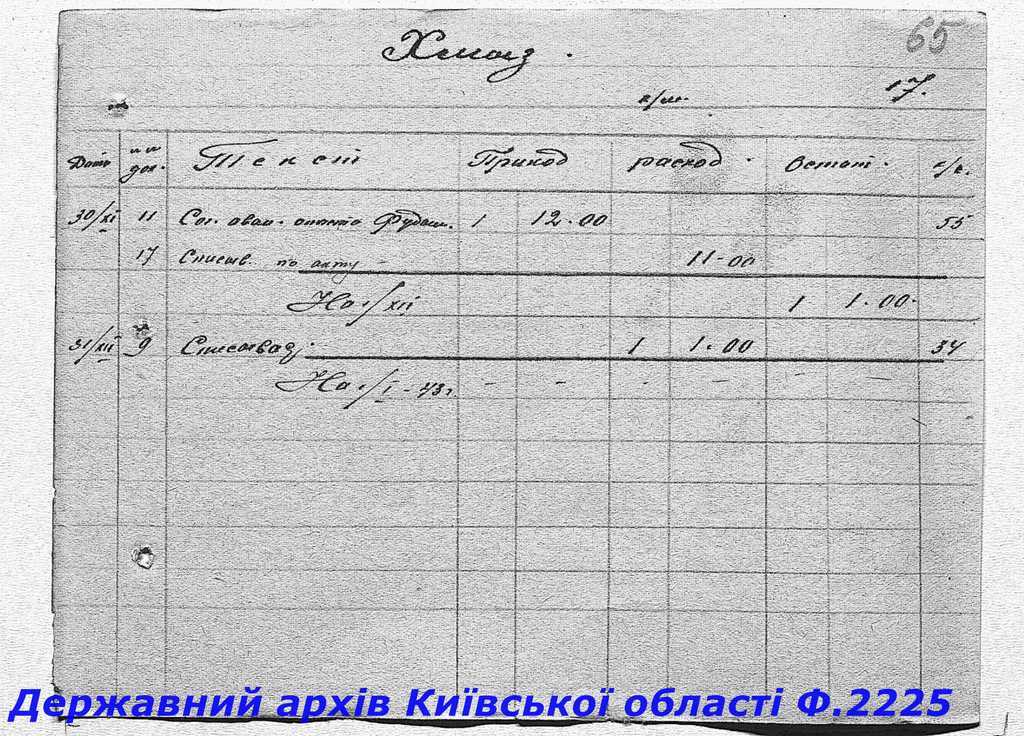 65
Хмыз.
к/м.
17.
Дата № № док. Текст Приход расход. Остат. к/с.
30/XI 11 Сог. аван. отчета 1 12.00 55
17 Списыв. по акту - 11-00
На 1/XII 1 1.00.
31/XII 9 1 1.00 34
На 1/I - 43г. - - - - - -
Державний архів Київської області Ф.2225